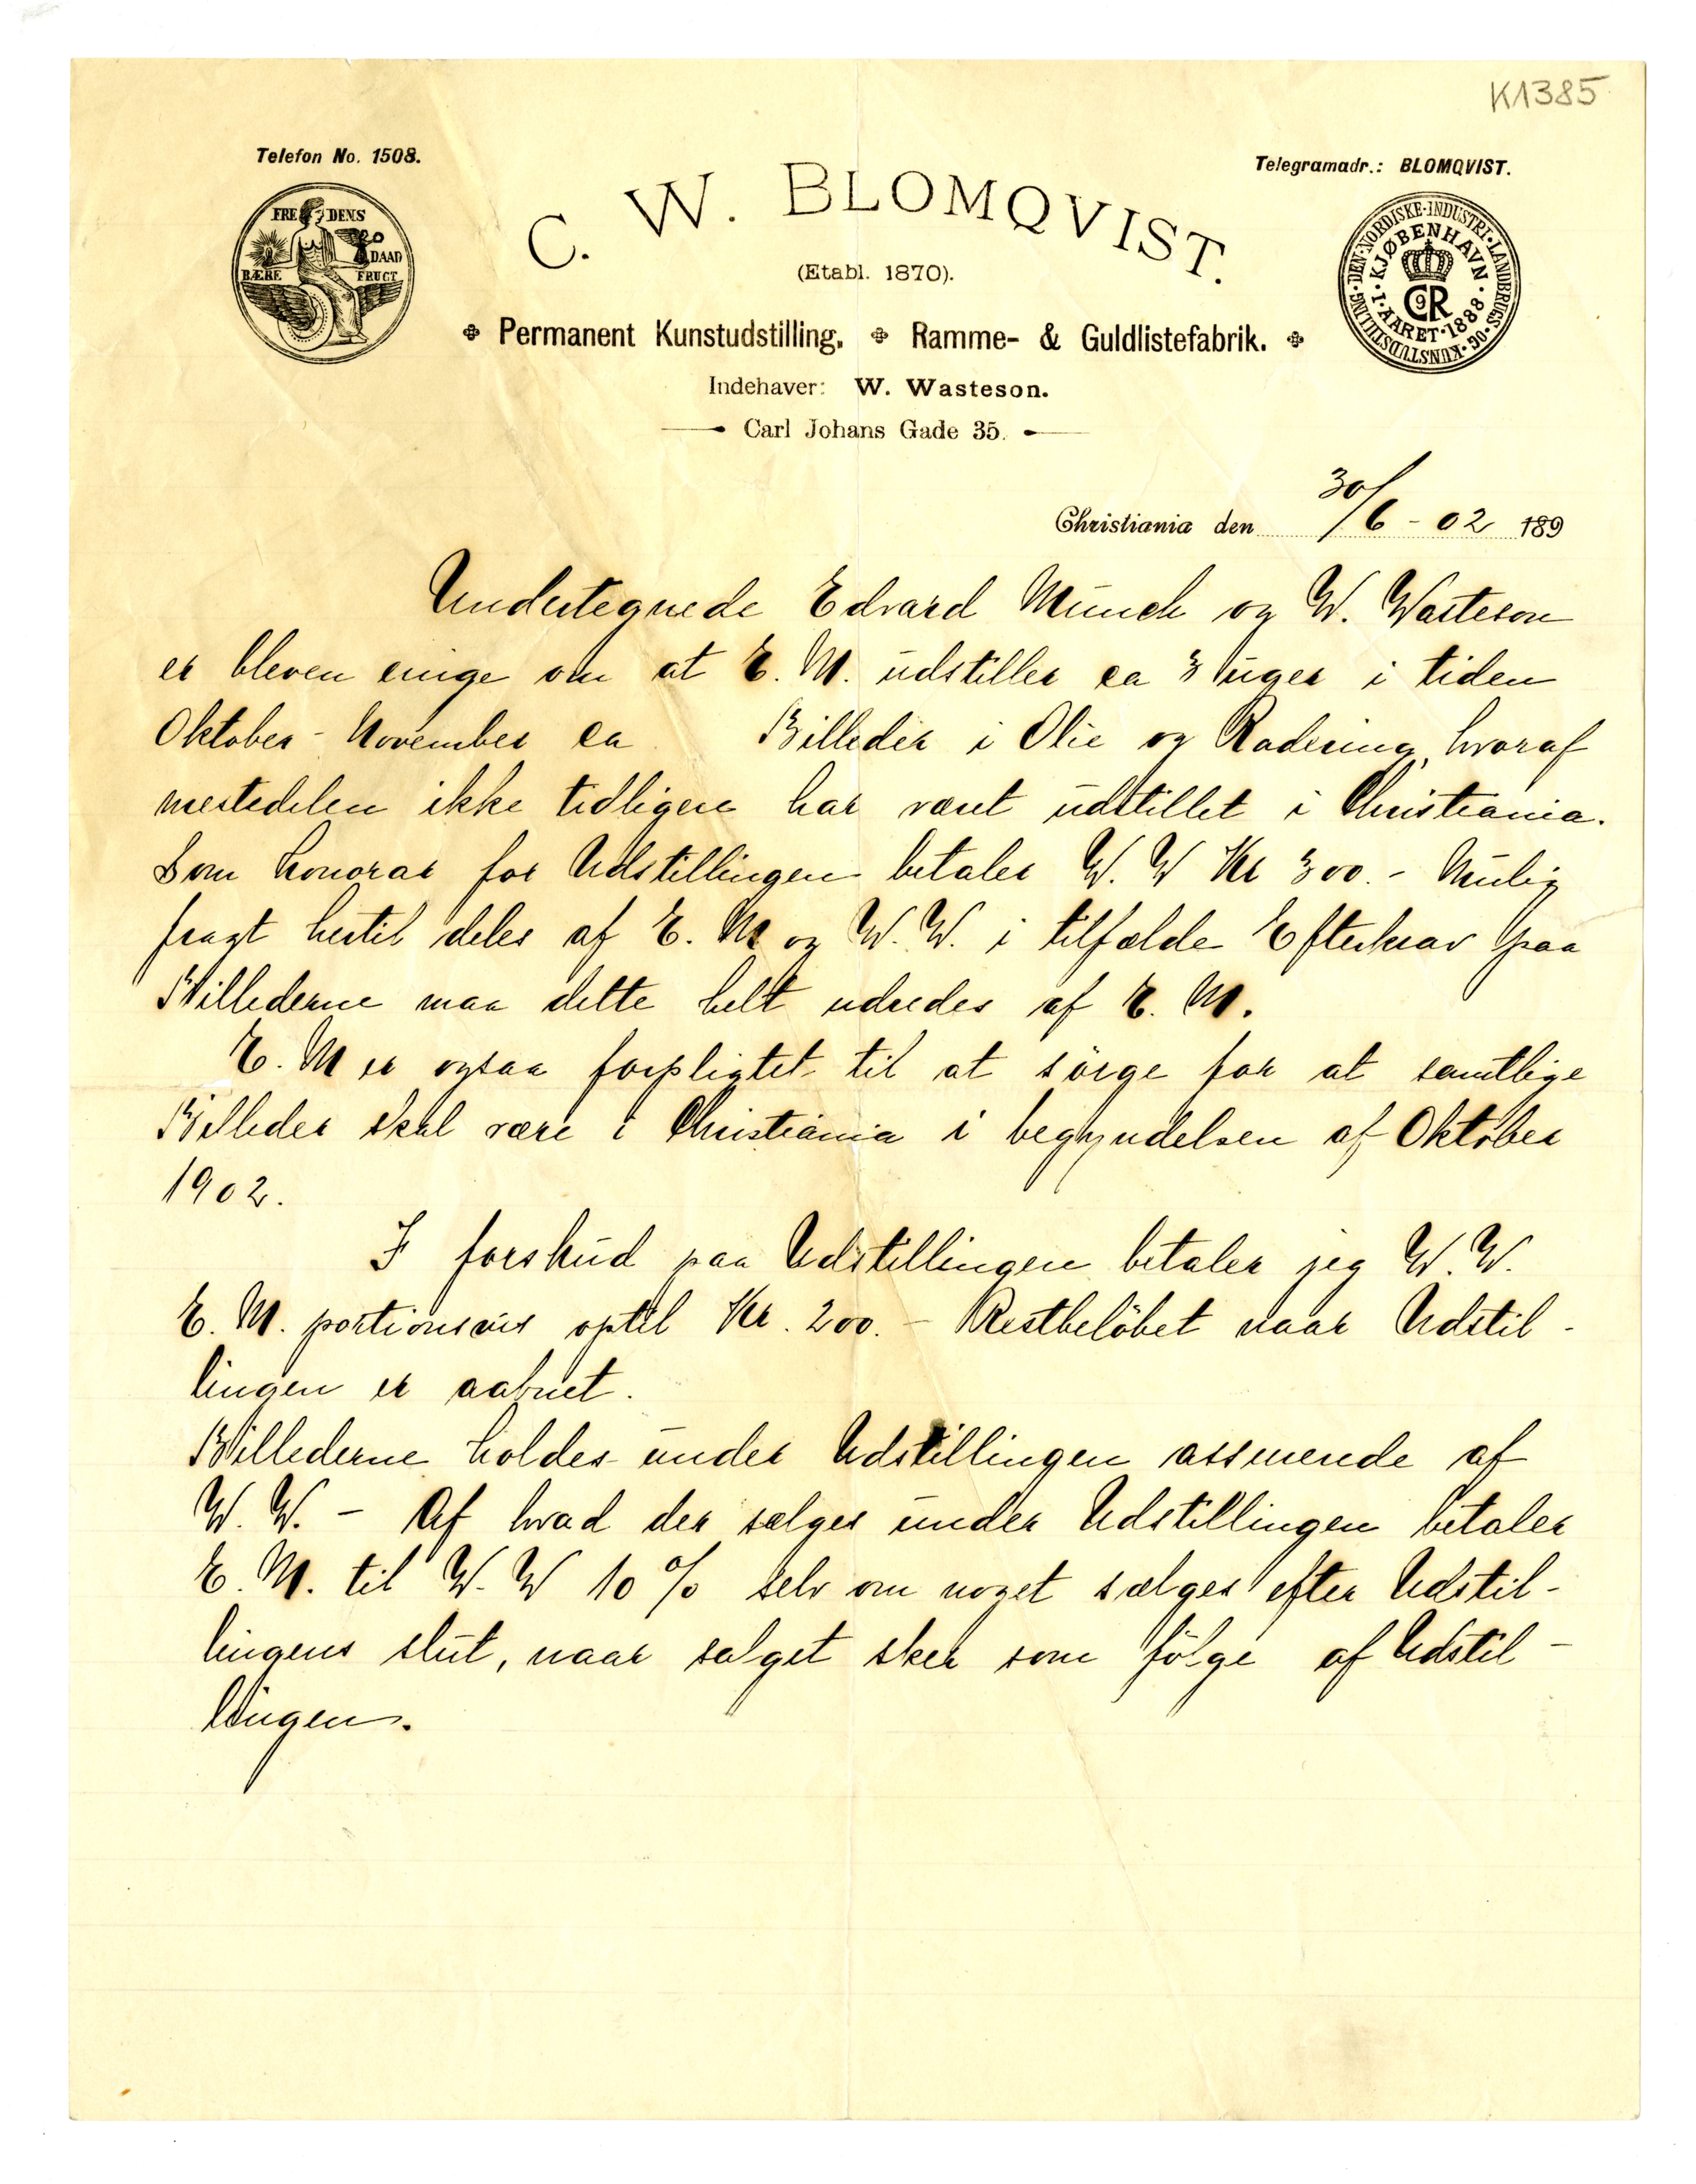 K1385
Telefon No. 1508.
Telegramadr.: BLOMQVIST.
FREDENS
DAAD
BÆRE FRUGT
C. W. BLOMQVIST.
(Etabl. 1870).
DEN·NORDISKE·INDUSTRI·LANDBRUGS·OG·KUNSTUDSTILLING·
KJØBENHAVN·I·AARET·1888·
C9R
Permanent Kunstudstilling. Ramme- & Guldlistefabrik.
Indehaver: W. Wasteson.
Carl Johans Gade 35.
Christiania den 30/6 - 02 189
Undertegnede Edvard Munch og W. Wasteson
er bleven enige om at E. M. udstiller ca 3 uger i tiden
Oktober - November ca Billeder i Olie og Radering, hvoraf
mestedelen ikke tidligere har været udstillet i Christiania.
Som honorar for Udstillingen betaler W. W Kr 300.- Mulig
fragt hertil deles af E. M og W. W. i tilfælde Efterkrav paa
Billederne maa dette helt udredes af E. M.
E. M er ogsaa forpligtet til at sörge for at samtlige
Billeder skal være i Christiania i begyndelsen af Oktober
1902.
I forskud paa Udstillingen betaler jeg W. W.
E. M. portionsvis optil Kr. 200. - Restbelöbet naar Udstil-
lingen er aabnet.
Billederne holdes under Udstillingen assurerede af
W. W. - Af hvad der sælges under Udstillingen betaler
E. M. til W. W 10 % selv om noget sælges efter Udstil-
lingens slut, naar salget sker som fölge af Udstil-
lingen.